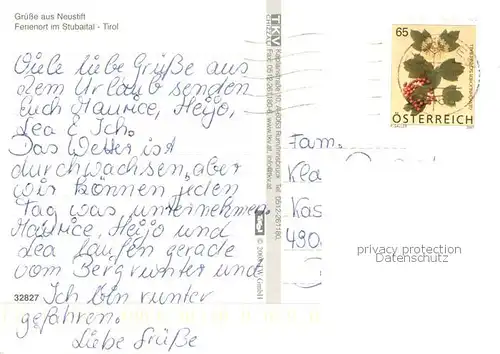 Grüße aus Neustift
Ferienort im Stubaital - Tirol
Viele liebe Grüße aus
dem Urlaub senden
Euch Maurice, Heijo,
Lea & Ich.
Das Wetter ist
durchwachsen, aber
wir können jeden
Tag was unternehmen.
Maurice, Heijo und
Lea laufen gerade
vom Berg runter und
Ich bin runter
gefahren.
Liebe Grüße
32827
TKV
65
ÖSTERREICH
Fam.
Kla
Kas
490
privacy protection
Datenschutz